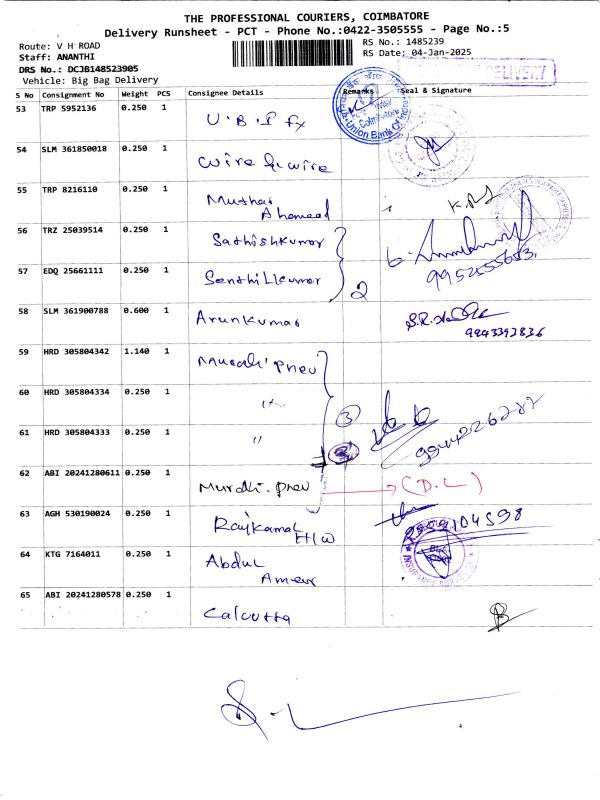 THE PROFESSIONAL COURIERS, COIMBATORE
Delivery Runsheet - PCT - Phone No.:0422-3505555 - Page No.:5
Route: V H ROAD
RS No.: 1485239
Staff: ANANTHI
RS Date; 04-Jan-2025
DRS No.: DCJB148523905
DELIVERY
Vehicle: Big Bag Delivery
S No Consignment No Weight PCS Consignee Details Remarks Seal & Signature
53 TRP 5952136 0.250 1 U.B.I fx
Union Bank Of India
54 SLM 361850018 0.250 1 wire & wire
55 TRP 8216110 0.250 1 Muthar
Ahamead
56 TRZ 25039514 0.250 1 Sathishkumar
9952555653
57 EDQ 25661111 0.250 1 Senthilkumar 2
58 SLM 361900788 0.600 1 Arunkumar
9943393836
59 HRD 305804342 1.140 1 Muralli pneu
60 HRD 305804334 0.250 1 〃 3
61 HRD 305804333 0.250 1 〃
9944226287
62 ABI 20241280611 0.250 1 Murdhi. pneu (D.L)
63 AGH 530190024 0.250 1 Rajkamal
H/W
9959104598
64 KTG 7164011 0.250 1 Abdul
Ameer
65 ABI 20241280578 0.250 1 Calcutta
4